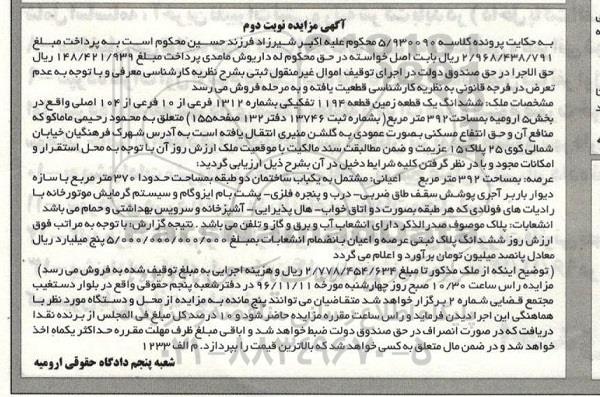 آگهی مزایده نوبت دوم
به حکایت پرونده کلاسه ۵/۹۳۰۰۹۰ محکوم علیه اکبر شیرزاد فرزند حسین محکوم است به پرداخت مبلغ
۲/۹۶۸/۴۳۸/۷۹۱ ریال بابت اصل خواسته در حق محکوم له داریوش مامدی پرداخت مبلغ ۱۴۸/۴۲۱/۹۳۹ ریال
حق الاجرا در حق صندوق دولت در اجرای توقیف اموال غیرمنقول ثبتی بشرح نظریه کارشناسی معرفی و با توجه به عدم
تعرض در فرجه قانونی به نظریه کارشناسی قطعیت یافته و به مرحله فروش می رسد
مشخصات ملک: ششدانگ یک قطعه زمین قطعه ۱۱۹۴ تفکیکی بشماره ۱۳۱۲ فرعی از ۱۰ فرعی از ۱۰۴ اصلی واقع در
بخش۵ ارومیه بمساحت ۳۹۲ متر مربع (بشماره ثبت ۱۳۷۴۶ دفتر۱۳۲ صفحه۱۵۵) متعلق به محمود رحیمی ماماکو که
منافع آن و حق انتفاع مسکنی بصورت عمودی به گلشن منیری انتقال یافته است به آدرس شهرک فرهنگیان خیابان
شمالی کوی ۲۵ پلاک ۱۵ عزیمت و ضمن مطالبقت سند مالکیت با موقعیت ملک ارزش روز آن با توجه به محل استقرار و
امکانات موجود و با در نظر گرفتن کلیه شرایط دخیل در آن بشرح ذیل ارزیابی گردید:
عرصه: بمساحت ۳۹۲ متر مربع اعیانی: مشتمل به یکباب ساختمان دو طبقه بمساحت حدودا ۳۷۰ متر مربع با سازه
دیوار باربر آجری پوشش سقف طاق ضربی- درب و پنجره فلزی- پشت بام ایزوگام و سیستم گرمایش موتورخانه با
رادیات های فولادی که هر طبقه بصورت دو اتاق خواب- هال پذیرایی- آشپزخانه و سرویس بهداشتی و حمام می باشد
انشعابات: پلاک موصوف صدرالذکر دارای انشعاب آب و برق و گاز و تلفن می باشد. نتیجه گزارش: با توجه به مراتب فوق
ارزش روز ششدانگ پلاک ثبتی عرصه و اعیان بانضمام انشعابات بمبلغ ۵/۰۰۰/۰۰۰/۰۰۰ پنج میلیارد ریال
معادل پانصد میلیون تومان برآورد و اعلام می گردد
( توضیح اینکه از ملک مذکور تا مبلغ ۲/۷۷۸/۴۵۴/۶۳۴ ریال و هزینه اجرایی به مبلغ توقیف شده به فروش می رسد)
مزایده راس ساعت ۱۰/۳۰ صبح روز چهارشنبه مورخه ۹۶/۱۱/۱۱ در دفترشعبه پنجم حقوقی واقع در بلوار دستغیب
مجتمع قضایی شماره ۲ برگزار خواهد شد متقاضیان می توانند پنج مانده به مزایده از محل و دستگاه مورد نظر با
هماهنگی این اجرا دیدن فرماید و راس ساعت مقرره مزایده حاضر شود و ۱۰ درصد کل مبلغ فی المجلس از برنده نقدا
دریافت که در صورت انصراف در حق صندوق دولت ضبط خواهد شد و الباقی مبلغ ظرف مهلت مقرره حداکثر یکماه اخذ
خواهد شد و در ضمن مال متعلق به کسی خواهد شد که بالاترین قیمت را بپردازد. م الف ۱۲۳۳
شعبه پنجم دادگاه حقوقی ارومیه